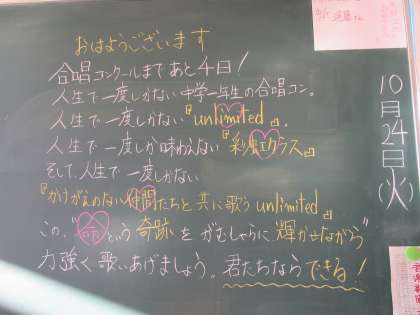 おはようございます
合唱コンクールまであと4日!
人生で一度しかない中学一年生の合唱コン。
人生で一度しかない『unlimited』。
人生で一度しか味わえない『彩虹クラス』
そして、人生で一度しかない
『かけがえのない仲間たちと共に歌うunlimited』
この、“命”という奇跡をがむしゃらに輝かせながら”
力強く歌いあげましょう。君たちならできる!
10月24日(火)